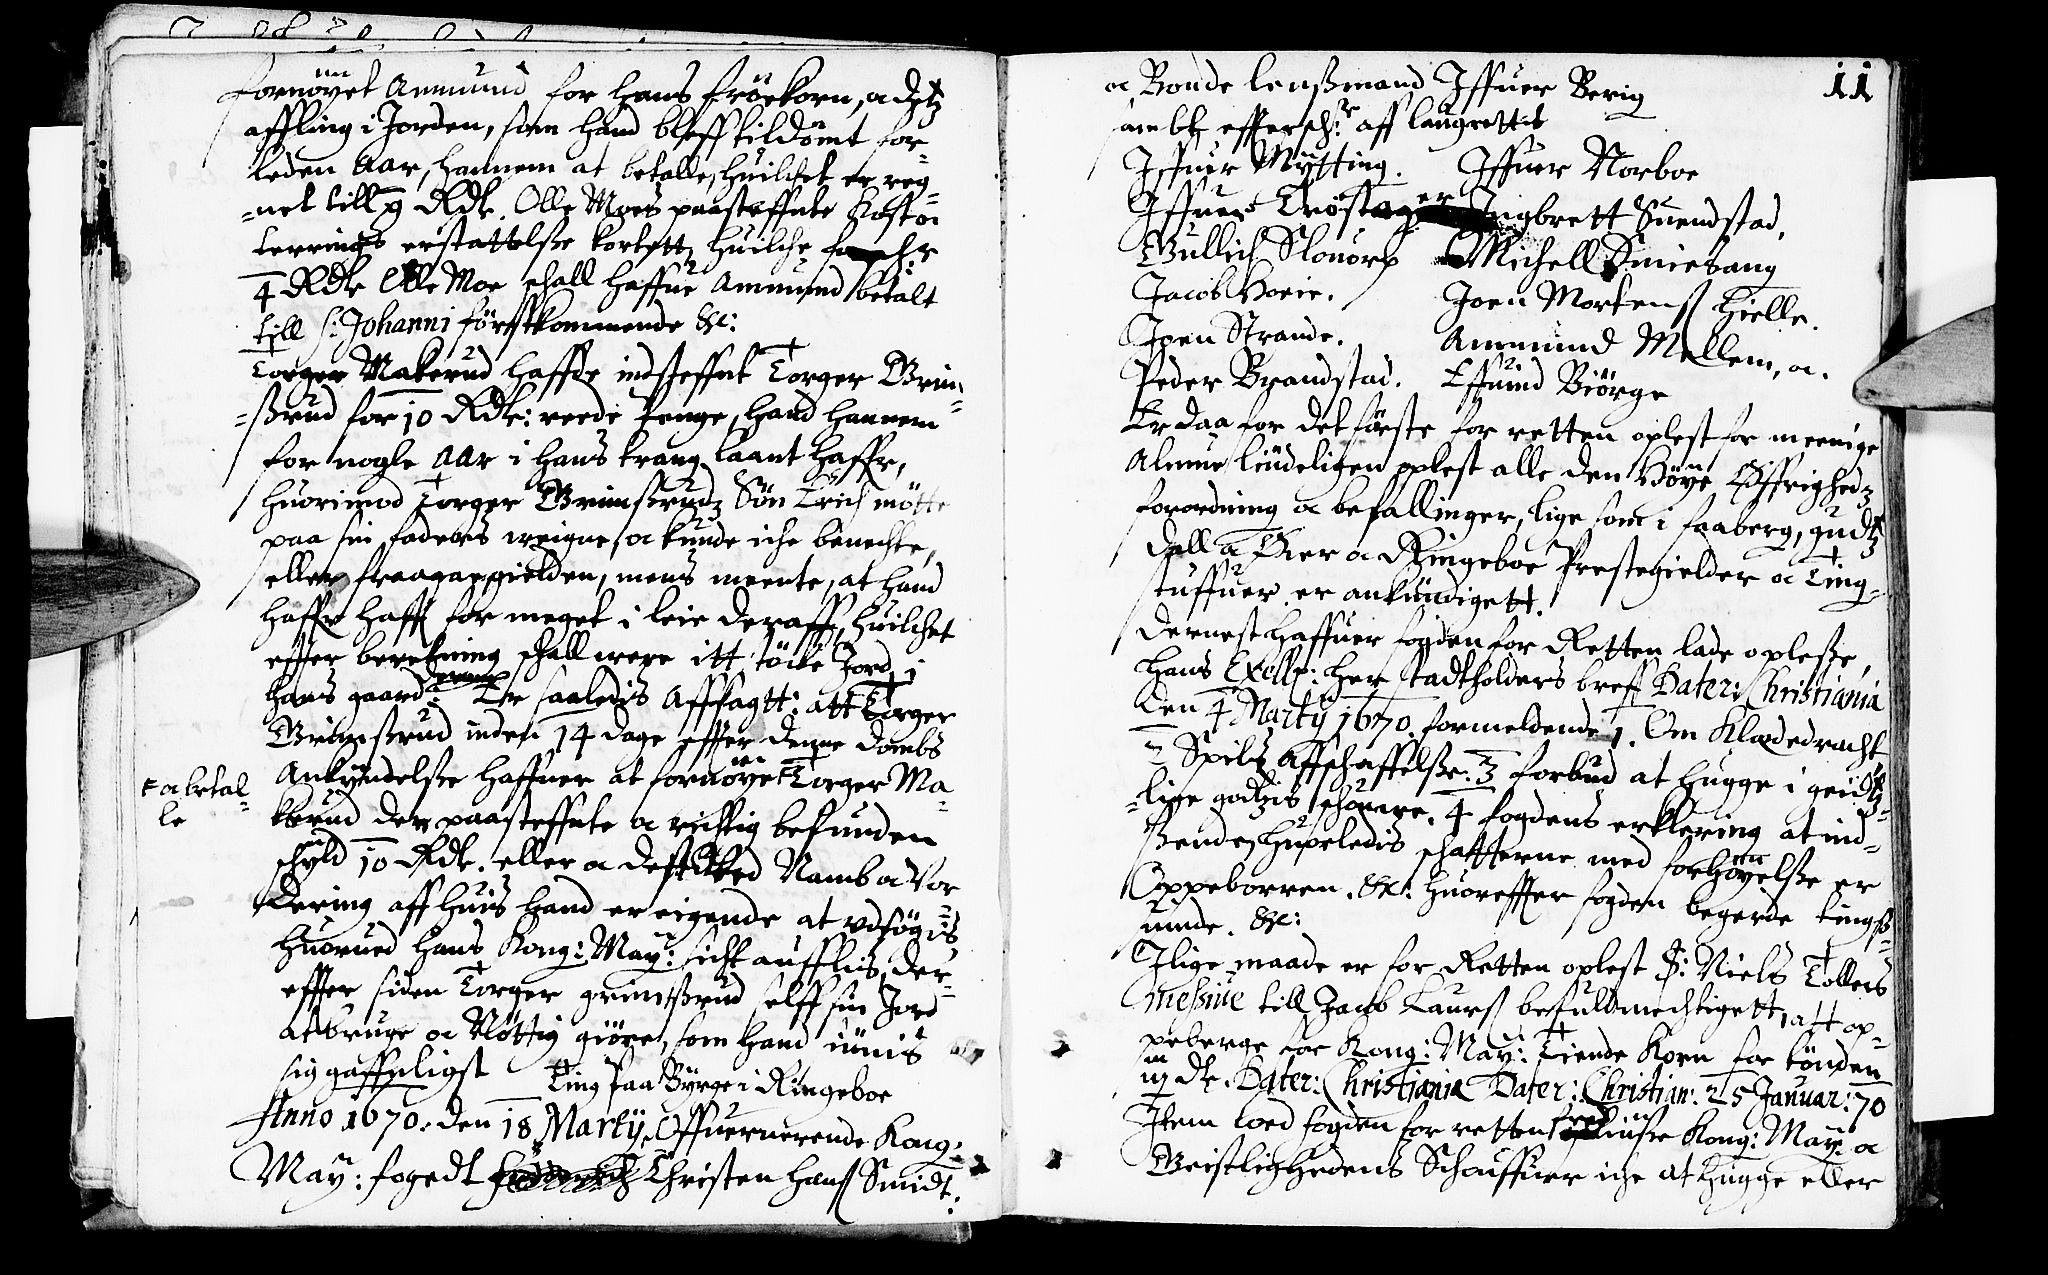 fornöyet Ammund for hans fröekorn, a detz
affling i Jorden, som hand bleff tildömt for-
leden Aar, hannem at betalle, huilchet er reg-
net till 9 Rdr. Olle Moes paasteffnte Kost oc
terrings erstattelsße kortett, huilche
4 Rdr Olle Moe schall haffue Ammund betalt
till S: Johanni förstkommende &c:
Torger Makerud haffde indsteffnt Torger Grim-
sßrud for 10 Rdr: reede penge, hand hannem
for nogle Aar i hans trang laant haffr,
huorimod Torger Grimsßrudz Sön Erich mötte
paa sin faders weigne, oc kunde iche benechte,
eller fraagaa gielden, mens meente, at hand
haffr hafft for meget i leie deraff, huilchet
effter beretning schall were itt støche Jord i
hans gaard. Er saaledis Affsagtt: att Torger
Grimsßrud inden 14 dage effter denne dombs
Ankyndelsße haffuer at fornöye Torger Ma-
t oc betal-
le
kerud den paasteffnte oc richtig befunden
schyld 10 Rdr. eller oc dest Namb oc Vor
dering aff huis hand er eigende at vdsögis
huorued hans Kong: May: sicht aufflis, der-
effter siden Torger Grimsßrud selff sin Jord
at bruge oc Nöttig giöre, som hand
sig gaffnligst
Ting Paa Byrge i Ringeboe
Anno 1670. den 18 Marty, Offueruerende Kong:
May: fogedt Christen Hansß Smidt.
11
oc Bonde lensßmand Iffuer Berig
sambt effterschr: aff laugrettet
Iffuer Mytting. Iffuer Norboe
Iffuer Trøstager Ingbrett Suendstad,
Gullich Slouorp Michell Smiebang
Jacob Hoeie. Joen Mortensß Hielle.
Joen Strande. Ammund Mellem, oc.
Peder Brandstad. Effuind Biörge
Er daa for det förste for retten oplest for meenige
Almue liudeligen oplest alle den Höye Öffrighedz
forordning oc befallinger, lige som i faaberg, gudtz
dall Öier oc Ringeboe Prestegielder oc Ting-
stuffuer er ankundigett.
Dernest haffuer fogden for Retten lade oplesße,
hans Excell: Her stadtholders breff Dater: Christiania
den 4 Marty 1670. formeldende 1. Om Klædedracht
2 Spilis Affschaffelsße. 3 forbud at hugge i geidst-
lige godzis schouwe. 4 fogdens erklering at ind-
sßende, hureledis schatterne med forhöyelsße er
Oppeborren. &c: huoreffter fogden begerde tingsß
uinde. &c:
I lige maade er for Retten oplest S: Niels Tollers
messiue till Jacob Laursß befuldmechtigett, att op-
peberge for Kong: May: Tiende Korn for tönden
dr. Dater: Christiania Dater: Christian: 25 Januar: 70
Item loed fogden for retten Kong: May: oc
Geistlighedens Schouffuer iche at hugge eller